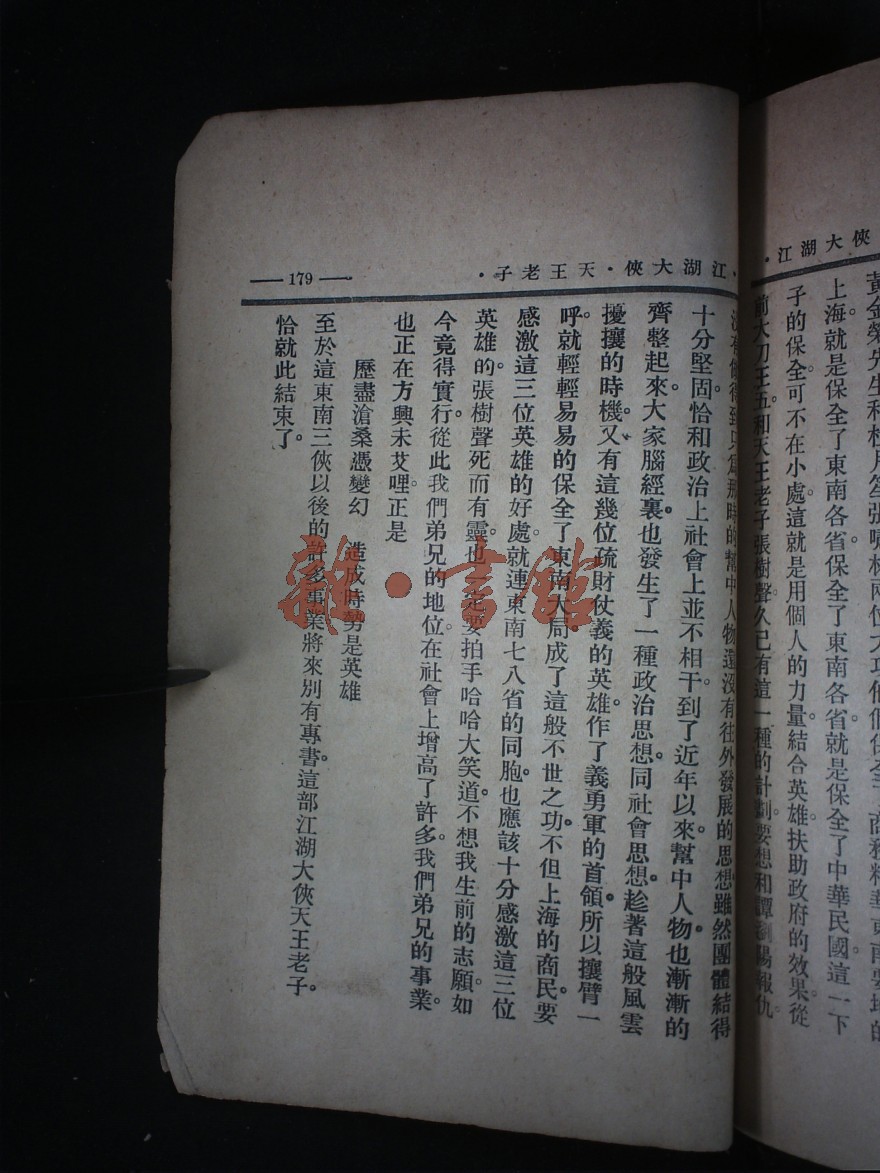 俠大湖江·
黃金榮先生和杜月笙張嘯林兩位大功他們保全了商務精華東南要地的
上海。就是保全了東南各省。保全了東南各省。就是保全了中華民國。這一下
子的保全。可不在小處。這就是用個人的力量。結合英雄。扶助政府的效果。從
前大刀王五。和天王老子張樹聲。久已有這一種的計劃。要想和譚瀏陽報仇。
·江湖大俠·天王老子·
—179—
沒有做得到。只為那時的幫中人物。還沒有往外發展的思想。雖然團體結得
十分堅固。恰和政治上社會上並不相干。到了近年以來。幫中人物。也漸漸的
齊整起來。大家腦經裏。也發生了一種政治思想。同社會思想。趁著這般風雲
擾攘的時機。又有這幾位疏財仗義的英雄。作了義勇軍的首領。所以攘臂一
呼。就輕輕易易的保全了東南大局。成了這般不世之功。不但上海的商民。要
感激這三位英雄的好處。就連東南七八省的同胞。也應該十分感激這三位
英雄的。張樹聲死而有靈。也一定要拍手哈哈大笑道。不想我生前的志願。如
今竟得實行。從此我們弟兄的地位。在社會上增高了許多。我們弟兄的事業。
也正在方興未艾哩。正是
歷盡滄桑憑變幻　造成時勢是英雄
至於這東南三俠以後的許多事業。將來別有專書。這部江湖大俠天王老子。
恰就此結束了。
雜·書館